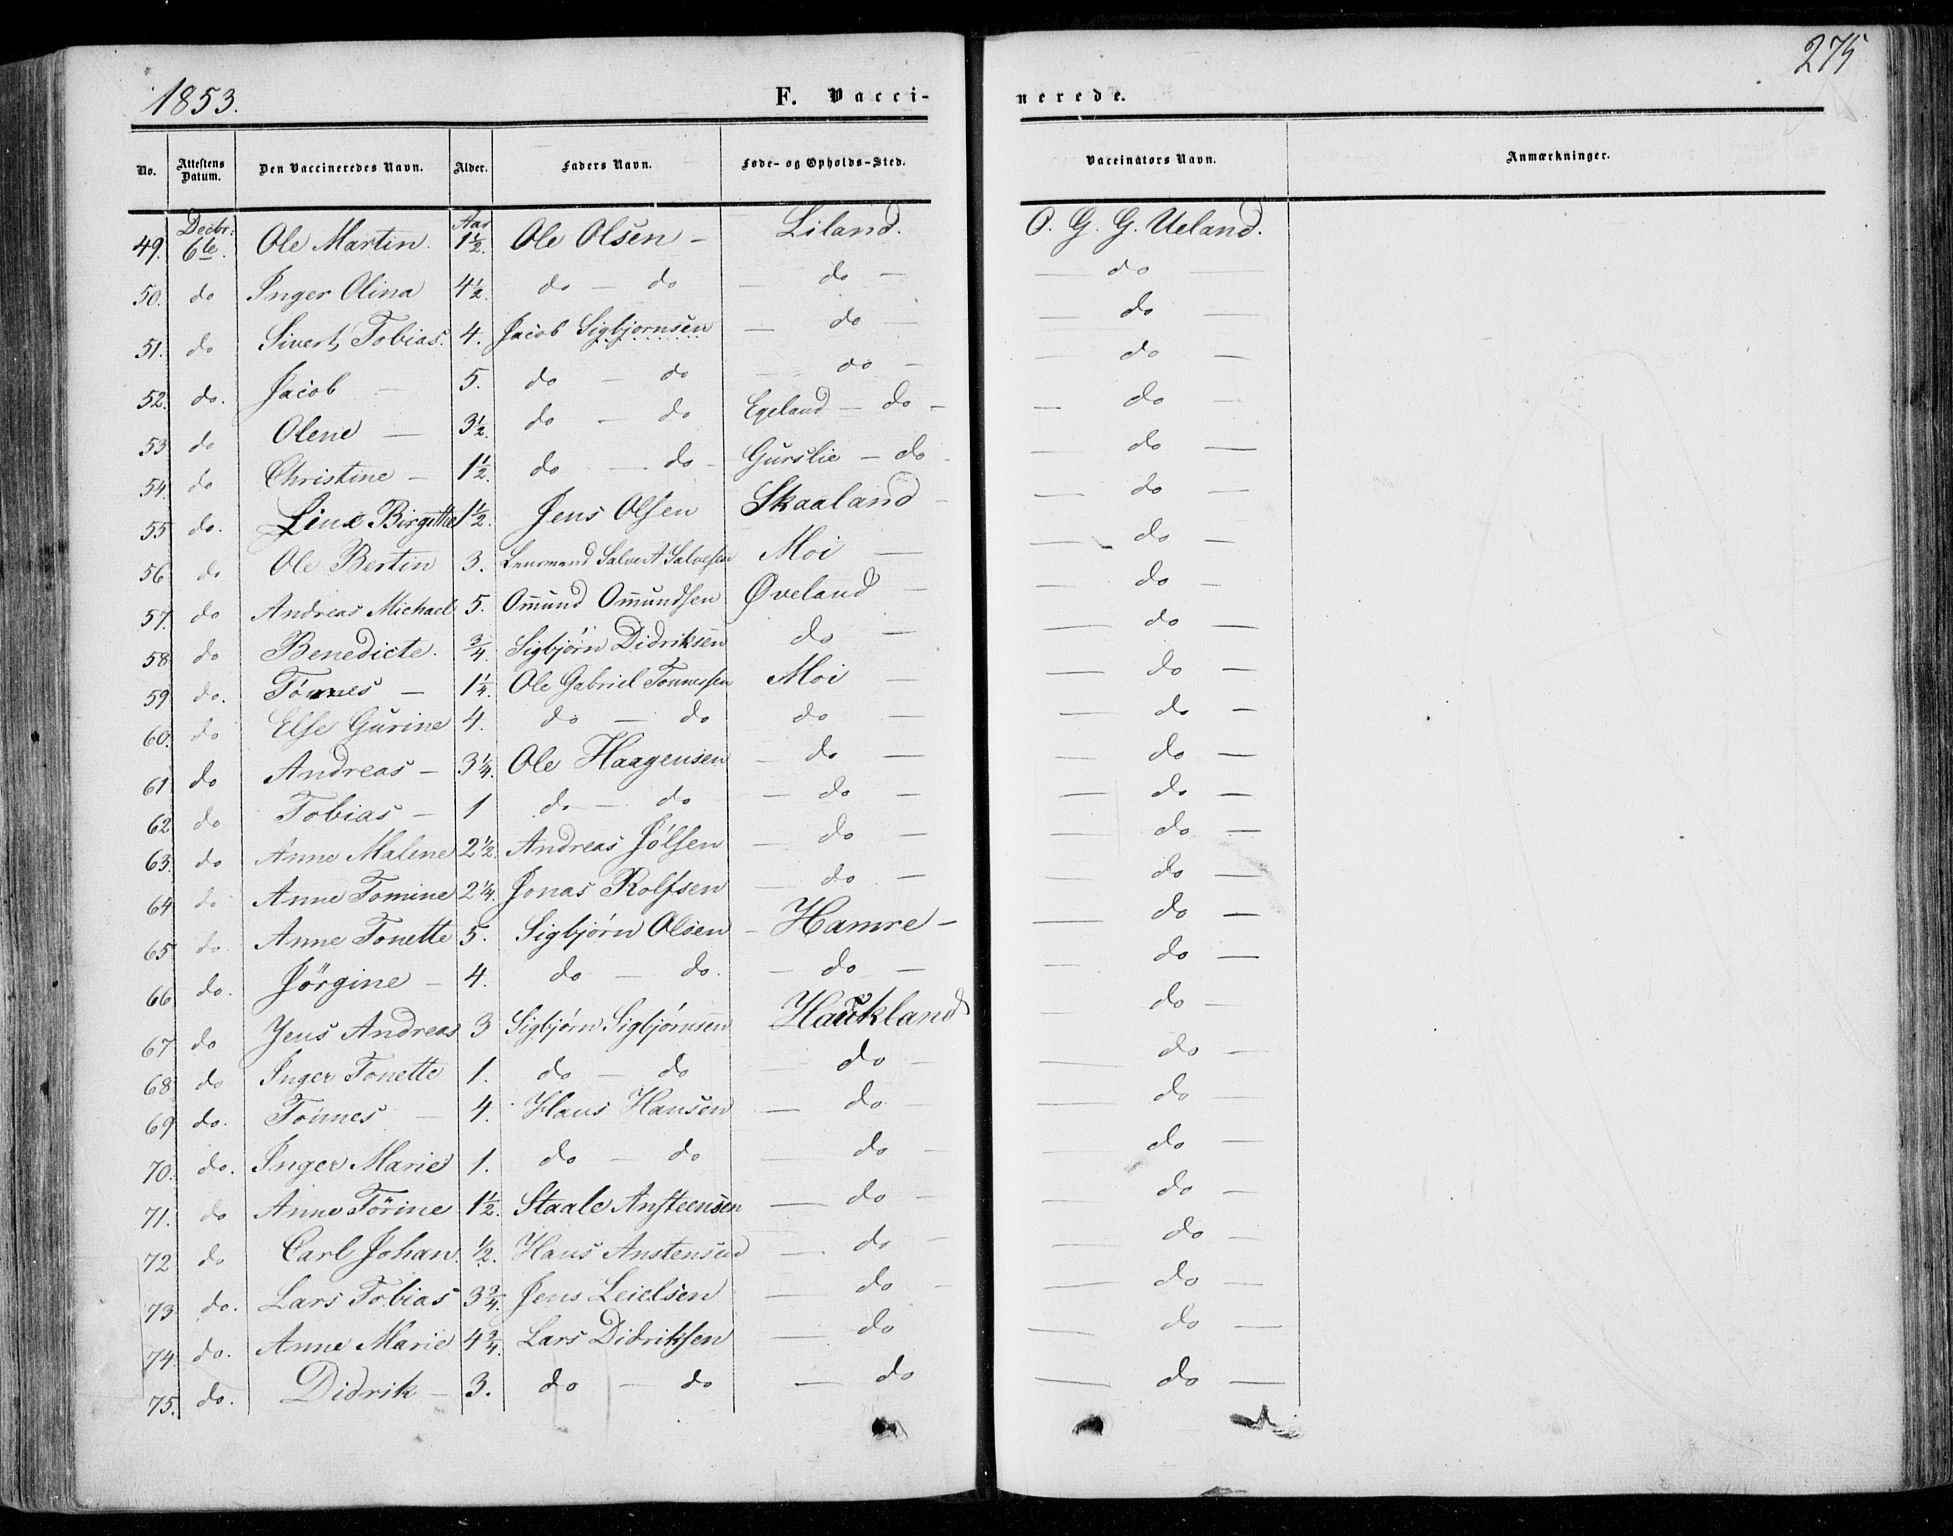 1853. F. Vacci-nerede. 275
No. Attestens Datum. Den Vaccineredes Navn. Alder. Faders Navn. Føde- og Opholds-Sted. Vaccinators Navn. Anmærkninger.
49. Decbr. 6te. Ole Martin. Aar 1½. Ole Olsen – Liland. O. G. G. Ueland.
50. do Inger Olina 4½. do – do – do – – do –
51. do Sivert Tobias. 4. Jacob Sigbjornsen – do – – do –
52. do. Jacob – 5. do – do – do – – do –
53 do Olene – 3½. do – do Egeland – do – – do –
54. do Christine – 1½. do – do – Gurslie – do – do –
55 do. Line Birgitte 1½. Jens Olsen Skaaland – – do –
56 do Ole Bertin 3. Lensmand Salve A Salvesen Moi – – do –
57. do Andreas Michael 5. Omund Omundsen Øveland – – do –
58. do Benedicte. ¾. Sigbjørn Didriksen do – – do –
59 do. Tønnes – 1¼. Ole Gabriel Tønnessen Moi – – do –
60. do Else Gurine 4. do – do do – – do –
61 do Andreas – 3¼. Ole Haagensen – do – – do –
62 do Tobias – 1 do – do – do – – do –
63. do Anne Malene 2½. Andreas Jølsen – do – – do –
64 do Anne Tomine 2¼. Jonas Rolfsen – do – – do –
65 do Anne Tonette 5. Sigbjørn Olsen – Hamre – – do –
66 do. Jörgine – 4. do – do. – do – – do –
67 do Jens Andreas 3 Sigbjørn Sigbjørnsen Haukland – do –
68 do Inger Tonette 1. do – do – do – – do –
69 do. Tönnes – 4. Hans Hansen – do – – do –
70. do. Inger Marie 1. do – do – do – – do –
71. do Anne Törine 1½. Staale Ansteensen – do – – do –
72 do Carl Johan. ½. Hans Anstensen – do – – do –
73 do. Lars Tobias 3¾. Jens Leielsen – do – – do –
74. do. Anne Marie 4¾. Lars Didriksen – do – do –
75. do. Didrik – 3. do – do – do – do –